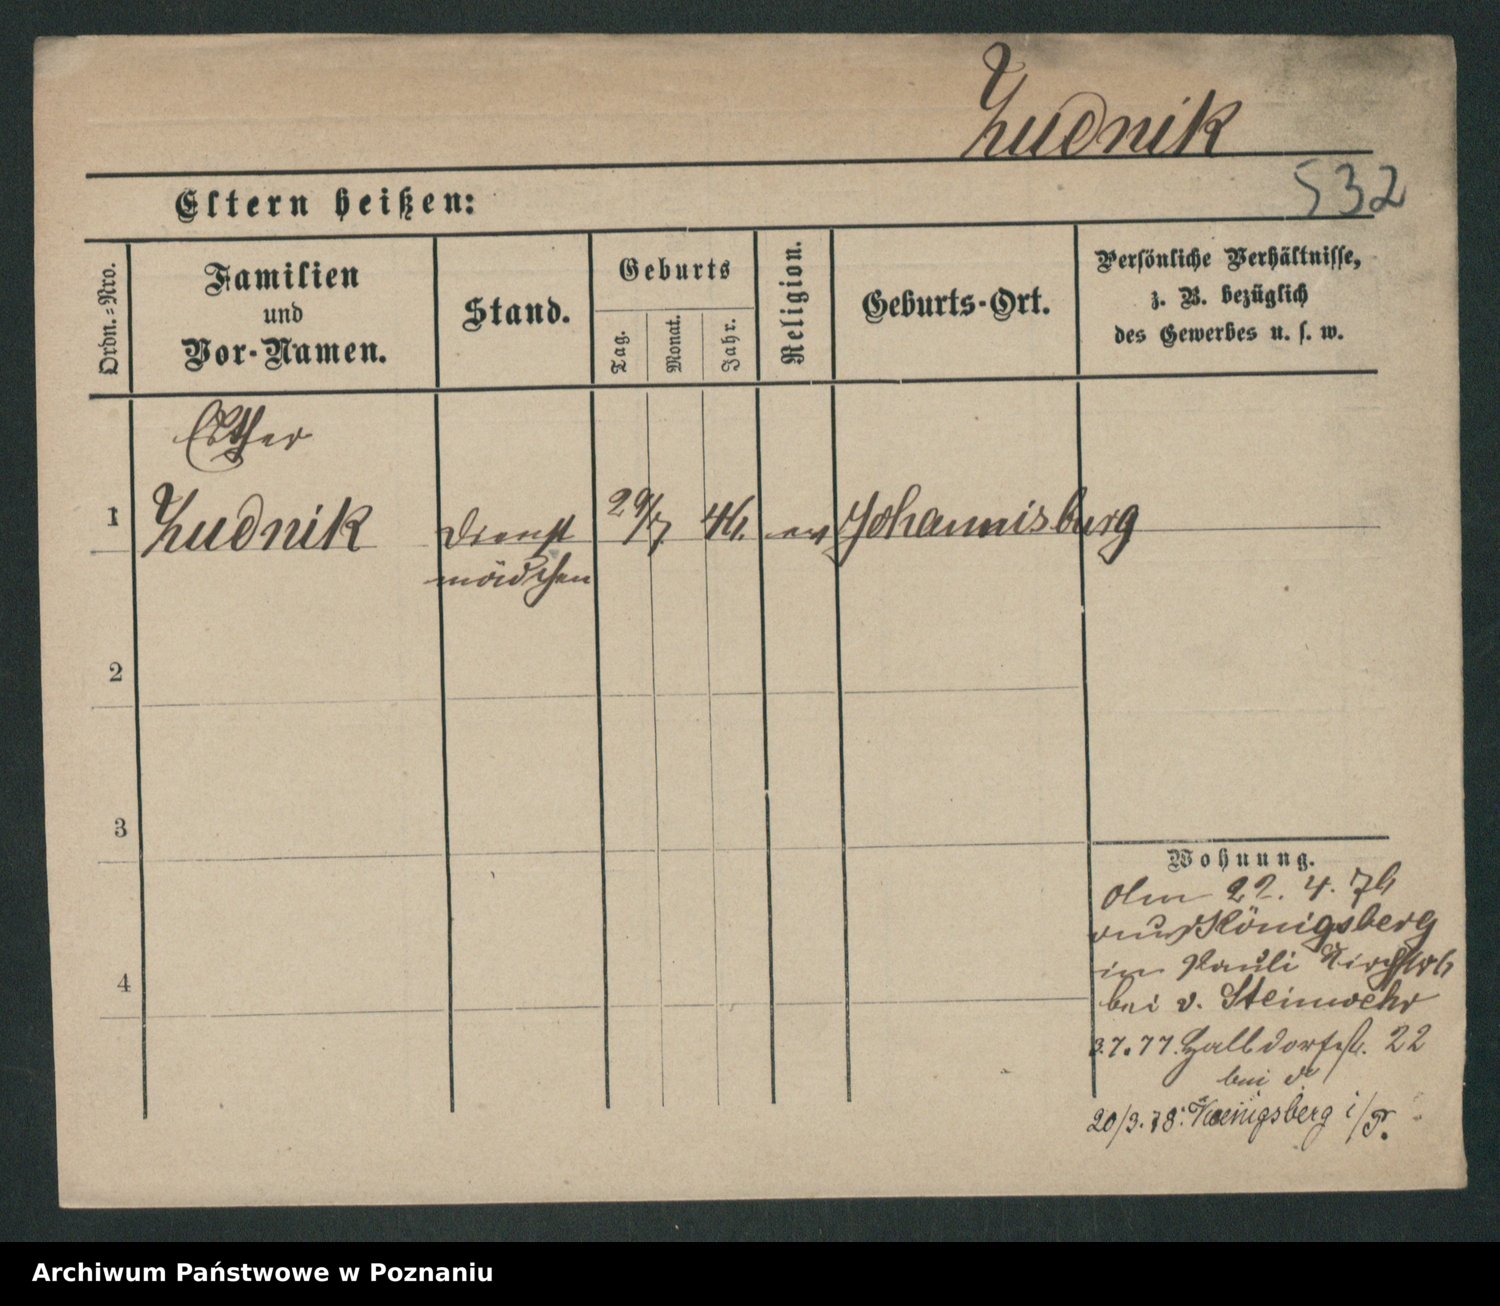 Zudnik
532
Eltern heißen:
Ordn.-Nro.
Familien
und
Vor-Namen.
Stand.
Geburts
Tag.
Monat.
Jahr.
Religion.
Geburts-Ort.
Persönliche Verhältnisse,
z. B. bezüglich
des Gewerbes u. s. w.
Esther
1 Zudnik Dienst 29/7 46. ev Johannisburg
mädchen
2
3
4
Wohnung.
22. 4. 76
Königsberg
im Pauli Kirchstr 6
bei v. Steinwehr
3.7.77. Halbdorfstr. 22
bei d
20/3.78: Koenigsberg i/P.
Archiwum Państwowe w Poznaniu